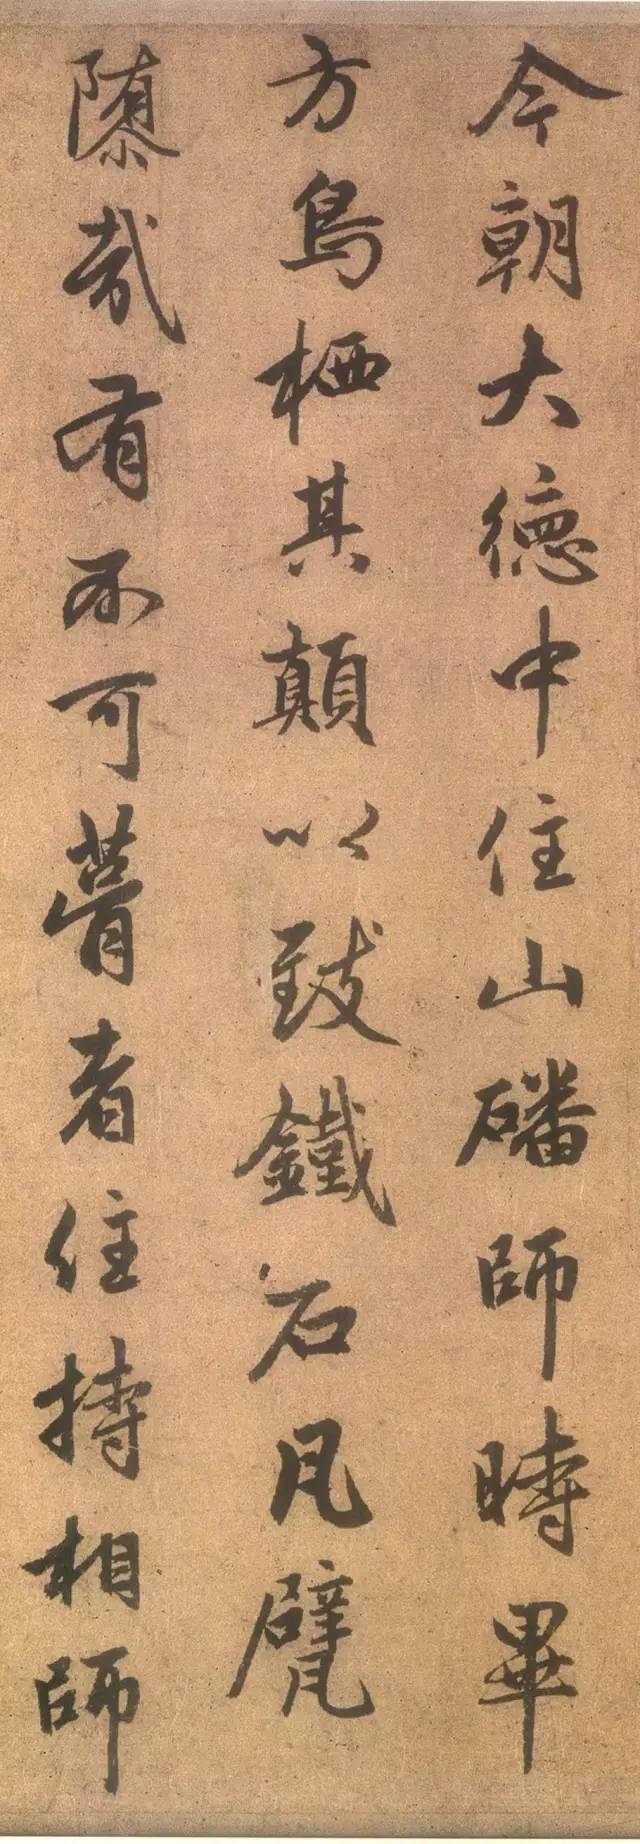 今朝大德中住山磻師時畢
方鳥栖其顛以致鐵石凡甓
隳哉有不可者住持相師